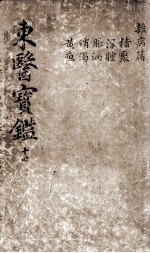 雜病篇
積聚
浮腫
脹滿
消渴
黃疸
東醫寶鑑